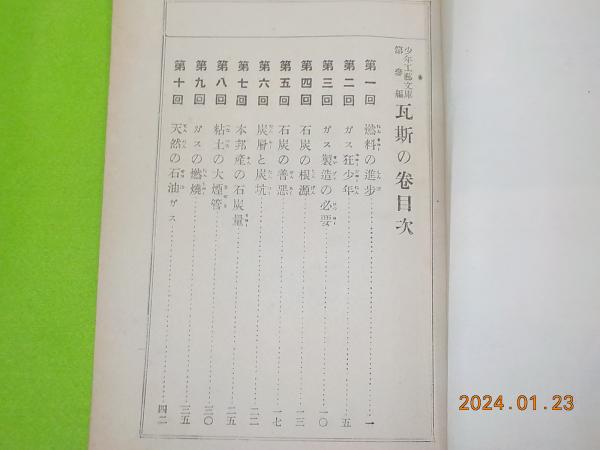 少年工藝文庫
第參編
瓦斯の卷目次
第一回 燃料の進步 一
第二回 ガス狂少年 五
第三回 ガス製造の必要 一〇
第四回 石炭の根源 一三
第五回 石炭の善惡 一七
第六回 炭層と炭坑 二二
第七回 本邦產の石炭量 二五
第八回 粘土の大煙管 三〇
第九回 ガスの燃燒 三五
第十回 天然の石油ガス 四二
2024.01.23